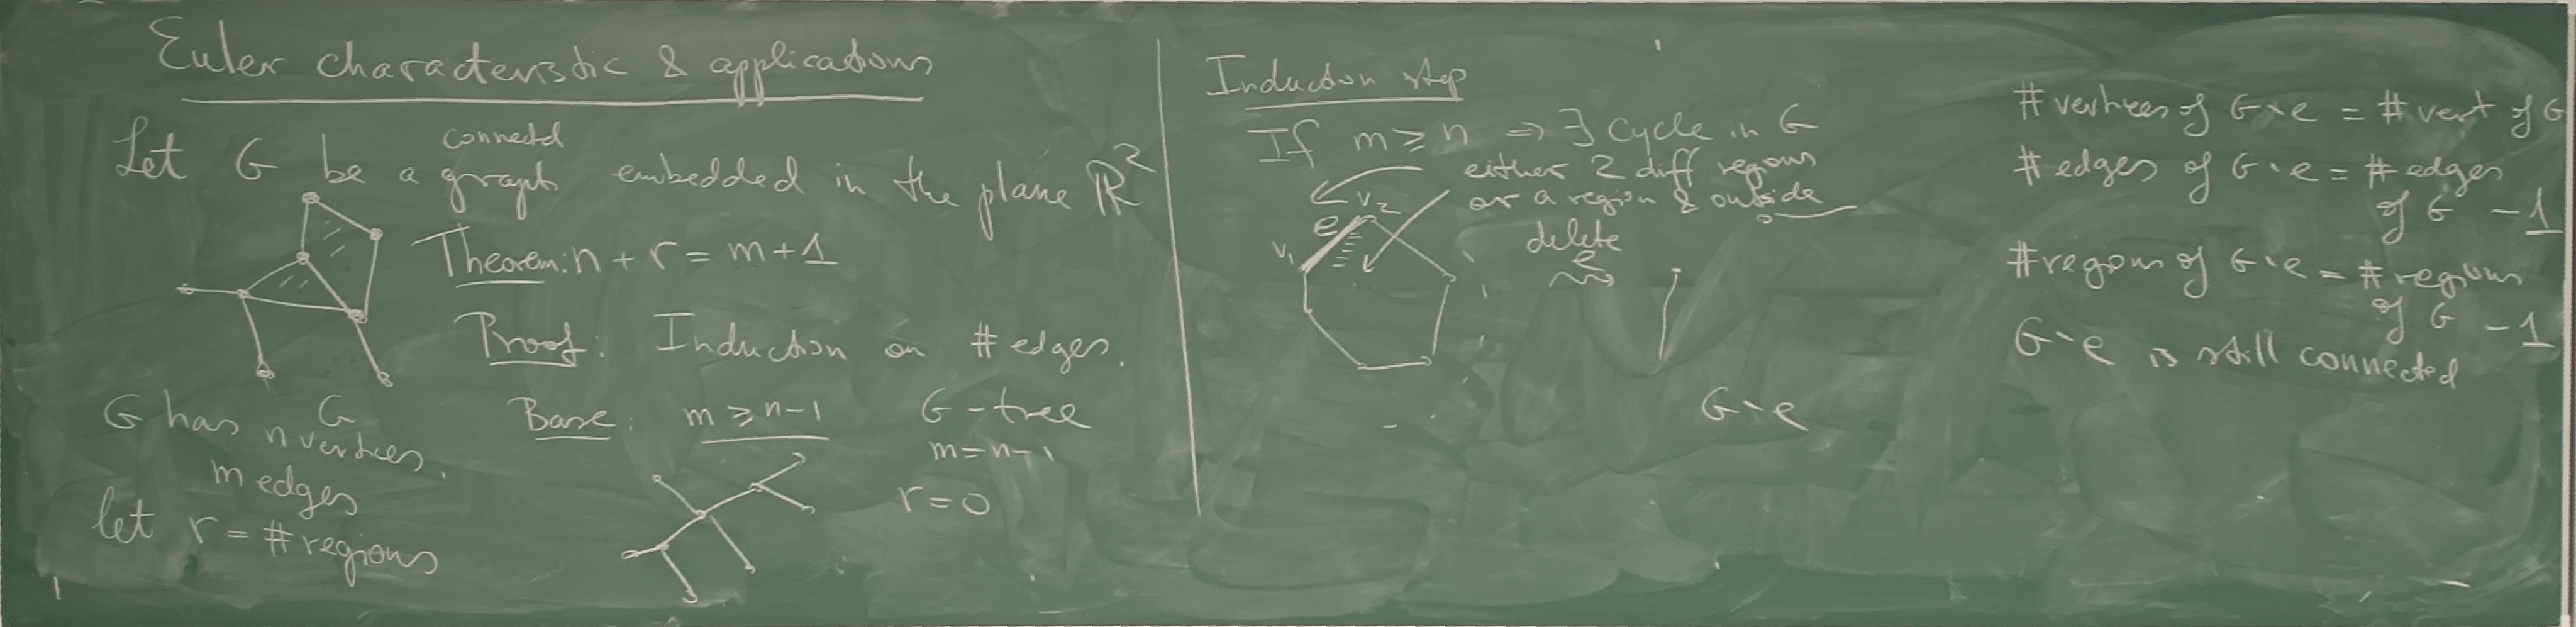 Euler characteristic & applications
connectd
Let G be a graph embedded in the plane ℝ²
Theorem: n + r = m + 1
Proof: Induction on # edges.
G
G has n vertices.
m edges
let r = # regions
Base: m ≥ n-1 G - tree
m = n-1
r = 0
Induction step
If m ≥ n ⇒ ∃ cycle in G
either 2 diff regions
or a region & outside
v₂
e
v₁
delete
e
G∖e
# vertices of G∖e = # vert of G
# edges of G∖e = # edges
of G - 1
# regions of G∖e = # regions
of G - 1
G∖e is still connected